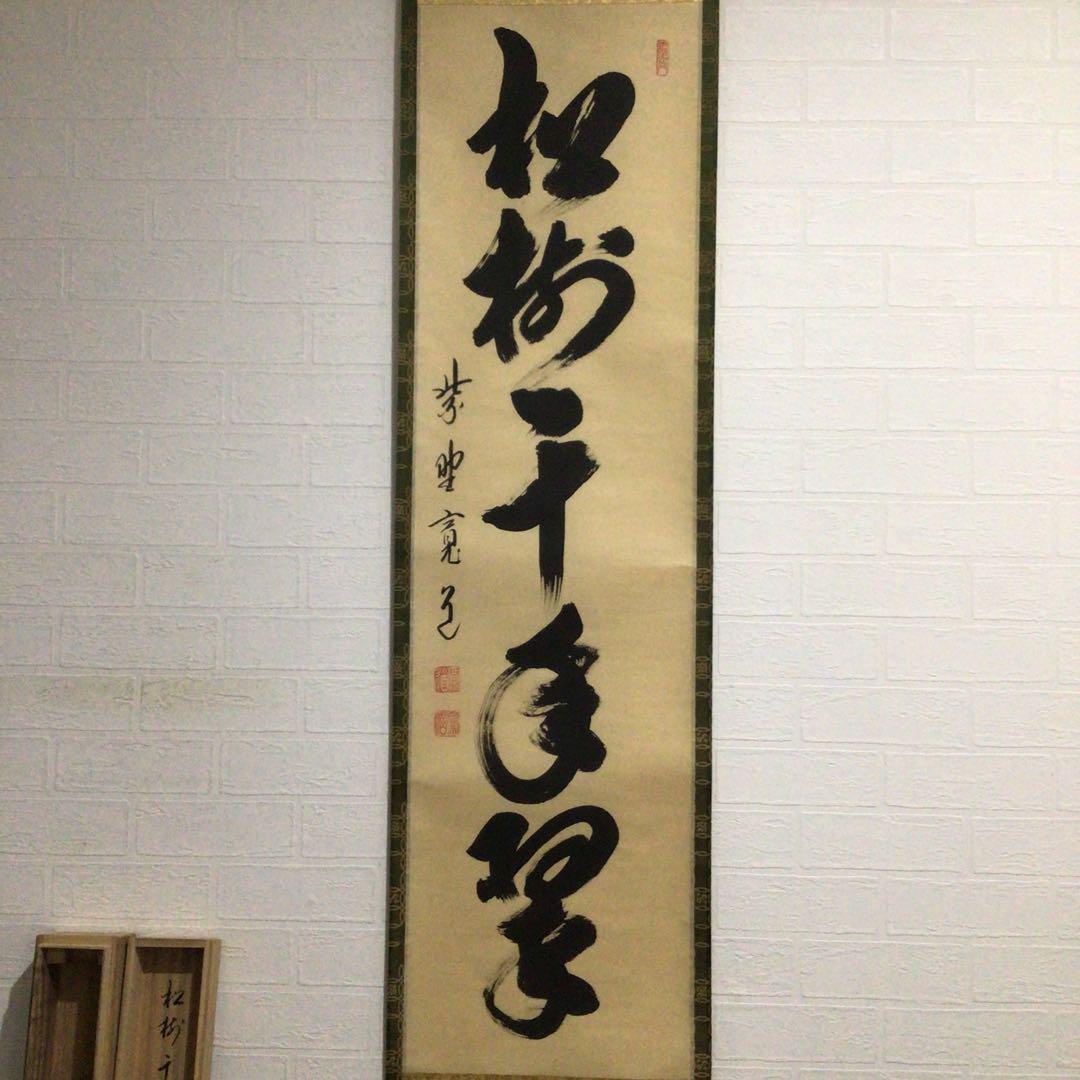 松樹千年翠
紫野寛道
松樹千